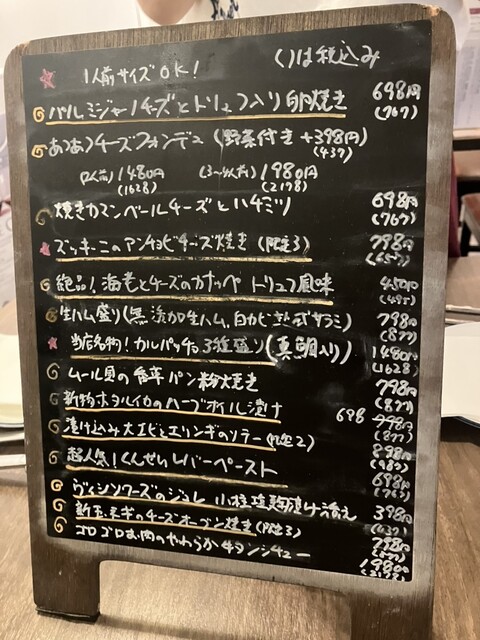 1人前サイズOK! ()は税込み
パルミジャーノチーズとトリュフ入り卵焼き 698円
(767)
あつあつチーズフォンデュ (野菜付き+398円)
(437)
(2人前) 1480円 (3〜4人前) 1980円
(1628) (2178)
焼きカマンベールチーズとハチミツ 698円
(767)
ズッキーニのアンチョビチーズ焼き (限定3) 798円
絶品!海老とチーズのカナッペ トリュフ風味 450円
(495)
生ハム盛り(無添加生ハム、白カビ サラミ) 798円
(877)
当店名物!カルパッチョ3種盛り(真鯛入り) 1480円
(1628)
ムール貝の香草パン粉焼き 798円
(877)
新物ホタルイカのハーブオイル漬け 698
(877)
漬け込み大エビとエリンギのソテー(限定2) 898円
(987)
超人気!くんせいレバーペースト 698円
(767)
ヴィシソワーズのジュレ 小柱塩麹漬け添え 398円
(437)
新玉ネギのチーズオーブン焼き(限定3) 798円
(877)
ゴロゴロお肉のやわらか牛タンシチュー 1980円
(2178)